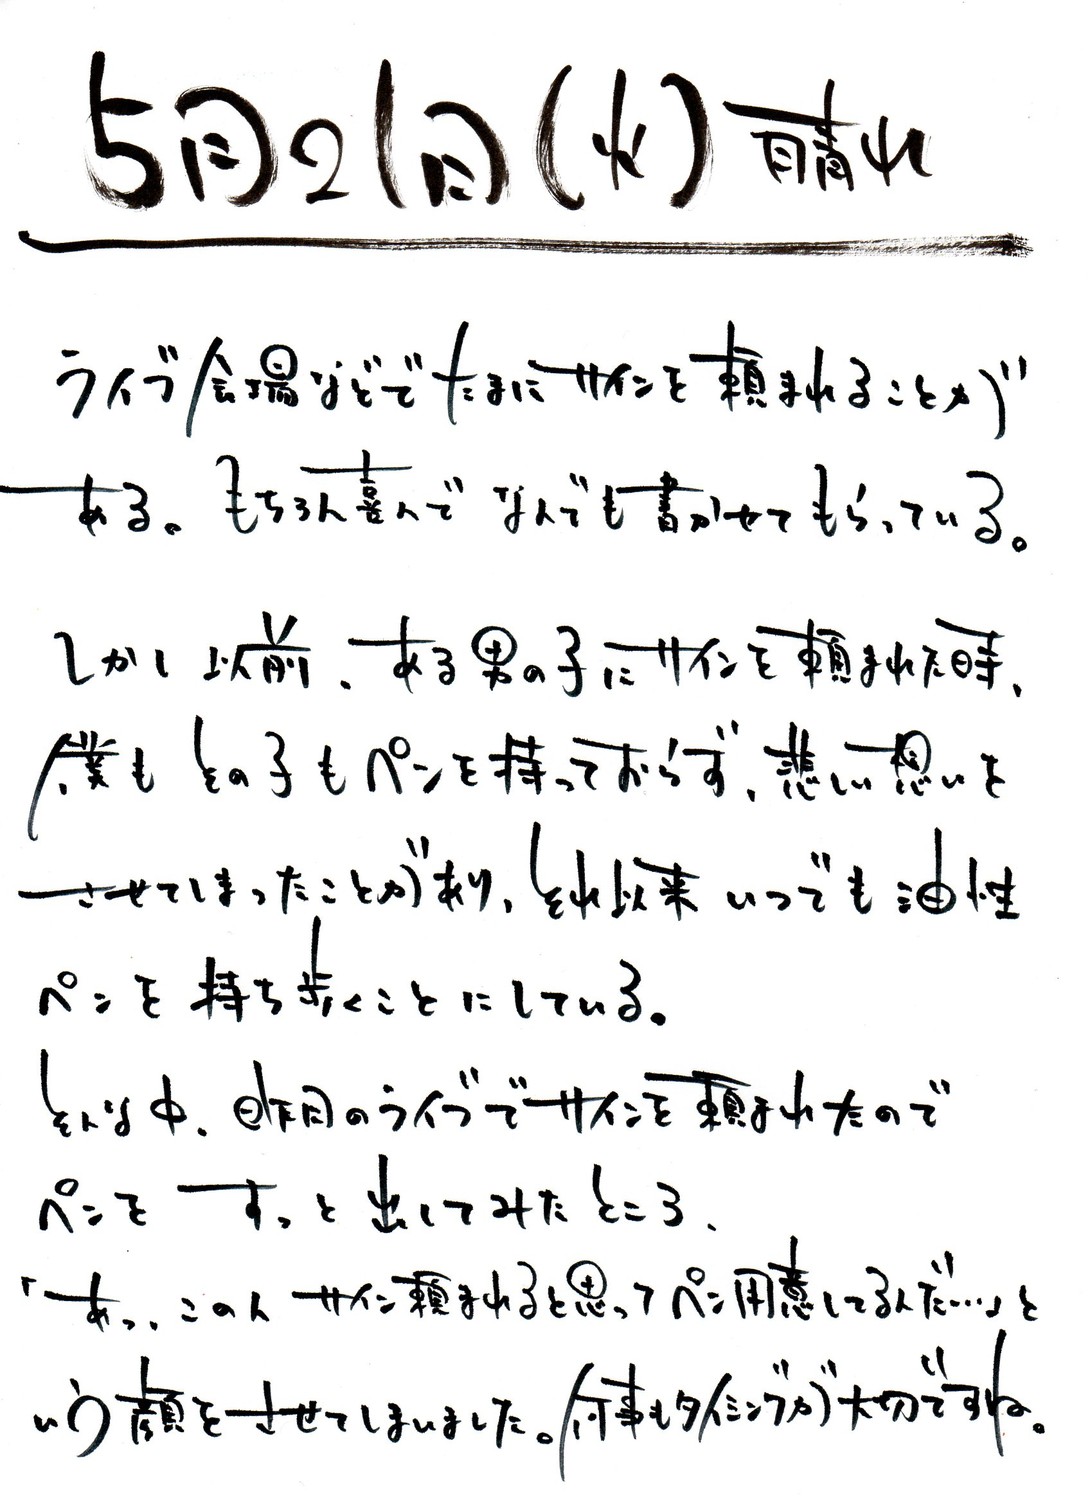 5月2日(火)晴れ
ライブ会場などでたまにサインを頼まれることが
ある。もちろん喜んでなんでも書かせてもらっている。
しかし以前、ある男の子にサインを頼まれた時、
僕もその子もペンを持っておらず、悲しい想いを
させてしまったことがあり、それ以来いつでも油性
ペンを持ち歩くことにしている。
そんな中、昨日のライブでサインを頼まれたので
ペンをすっと出してみたところ、
「あっ、この人サイン頼まれると思ってペン用意してるんだ…」と
いう顔をさせてしまいました。何事もタイミングが大切ですね。